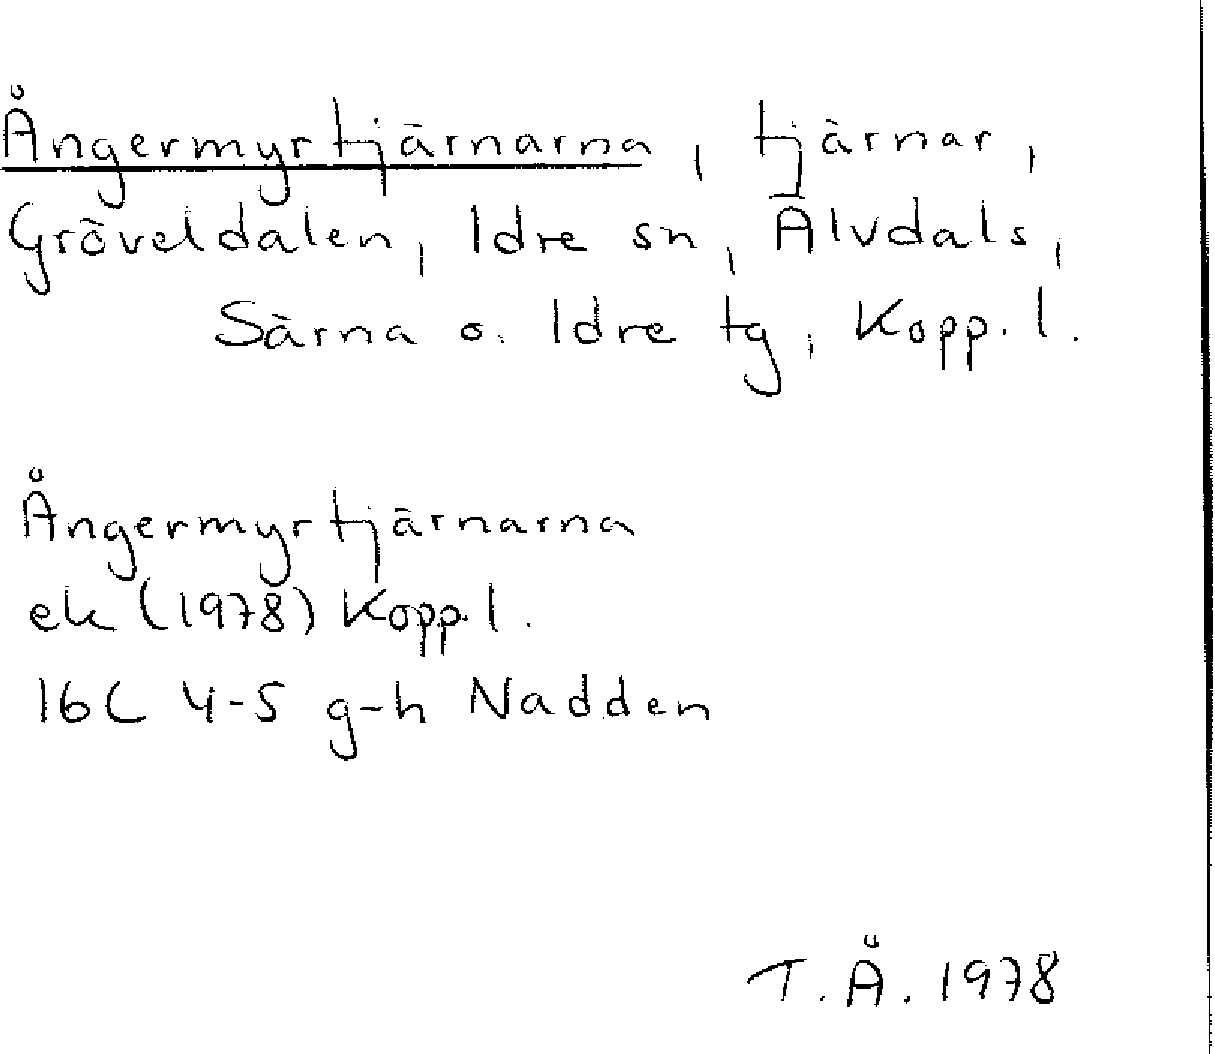 Ångermyrtjärnarna, tjärnar,
Gröveldalen, Idre sn, Älvdals,
Särna o. Idre tg, Kopp. l.
Ångermyrtjärnarna
ek (1978) Kopp. l.
16C 4-5 g-h Nadden
T. Å. 1978